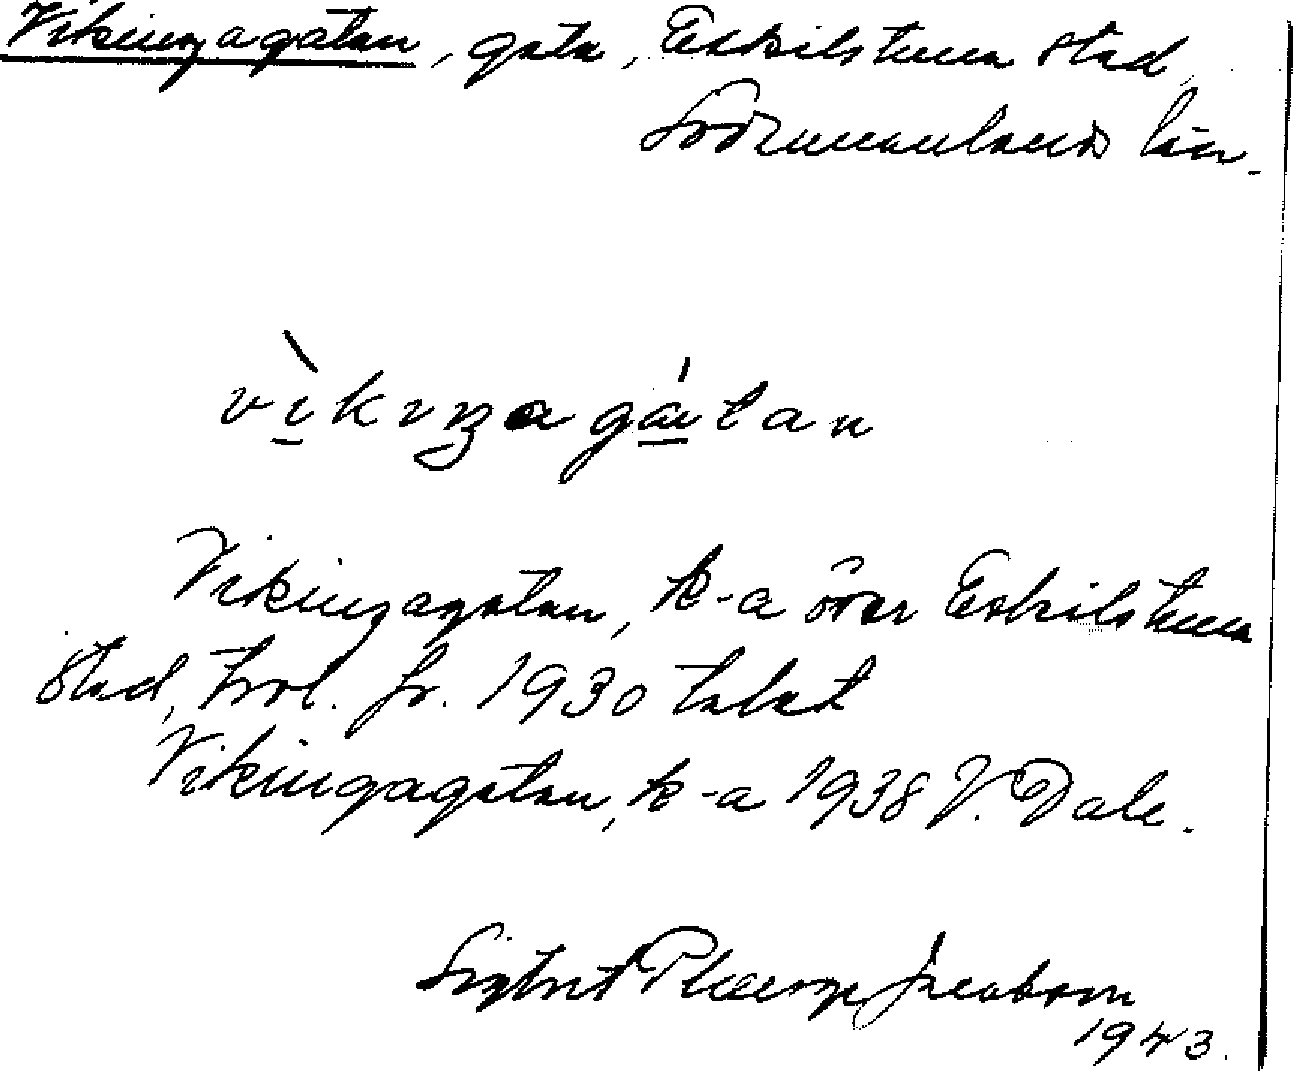 Vikingagatan, gata, Eskilstuna stad,
Södermanlands län.
vìkıŋagátan
Vikingagatan, k-a över Eskilstuna
stad, trol. fr. 1930 talet
Vikingagatan, k-a 1938 V. Dale.
Sigbrit Plænge Jacobson
1943.